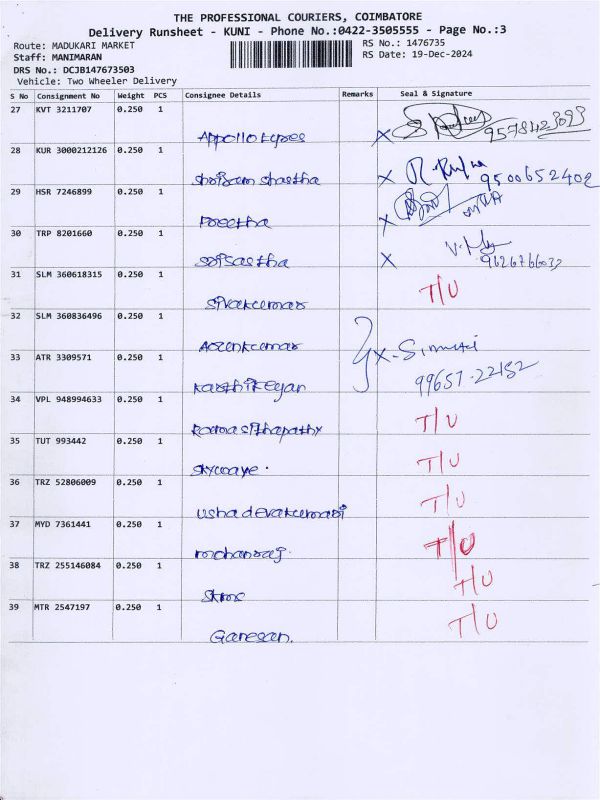 THE PROFESSIONAL COURIERS, COIMBATORE
Delivery Runsheet - KUNI - Phone No.:0422-3505555 - Page No.:3
Route: MADUKARI MARKET
RS No.: 1476735
Staff: MANIMARAN
RS Date: 19-Dec-2024
DRS No.: DCJB147673503
Vehicle: Two Wheeler Delivery
S No Consignment No Weight PCS Consignee Details Remarks Seal & Signature
27 KVT 3211707 0.250 1
Appollo tyres X
28 KUR 3000212126 0.250 1
X 9500652402
29 HSR 7246899 0.250 1
Preetha X
30 TRP 8201660 0.250 1
X
31 SLM 360618315 0.250 1
Sivakumar T/U
32 SLM 360836496 0.250 1
Arunkumar
33 ATR 3309571 0.250 1
Karthikeyan 99657-22152
34 VPL 948994633 0.250 1
T/U
35 TUT 993442 0.250 1
T/U
36 TRZ 52806009 0.250 1
T/U
37 MYD 7361441 0.250 1
mohanraj. T/U
38 TRZ 255146084 0.250 1
T/U
39 MTR 2547197 0.250 1
Ganesan. T/U